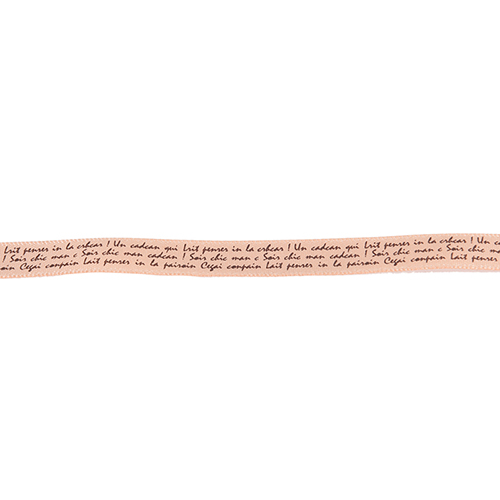 Lrit penser in la crhcar ! Un cadcan qui Lrit penser in la crhcar ! Un cadcan qui Lrit penser in la crhcar ! Un cadcan
! Soir chic man c Soir chic man c Soir chic man c Soir chic man c Soir chic man c Soir chic man
Cegai conpain Lait penser in la pairoin Cegai conpain Lait penser in la pairoin Cegai conpain Lait penser